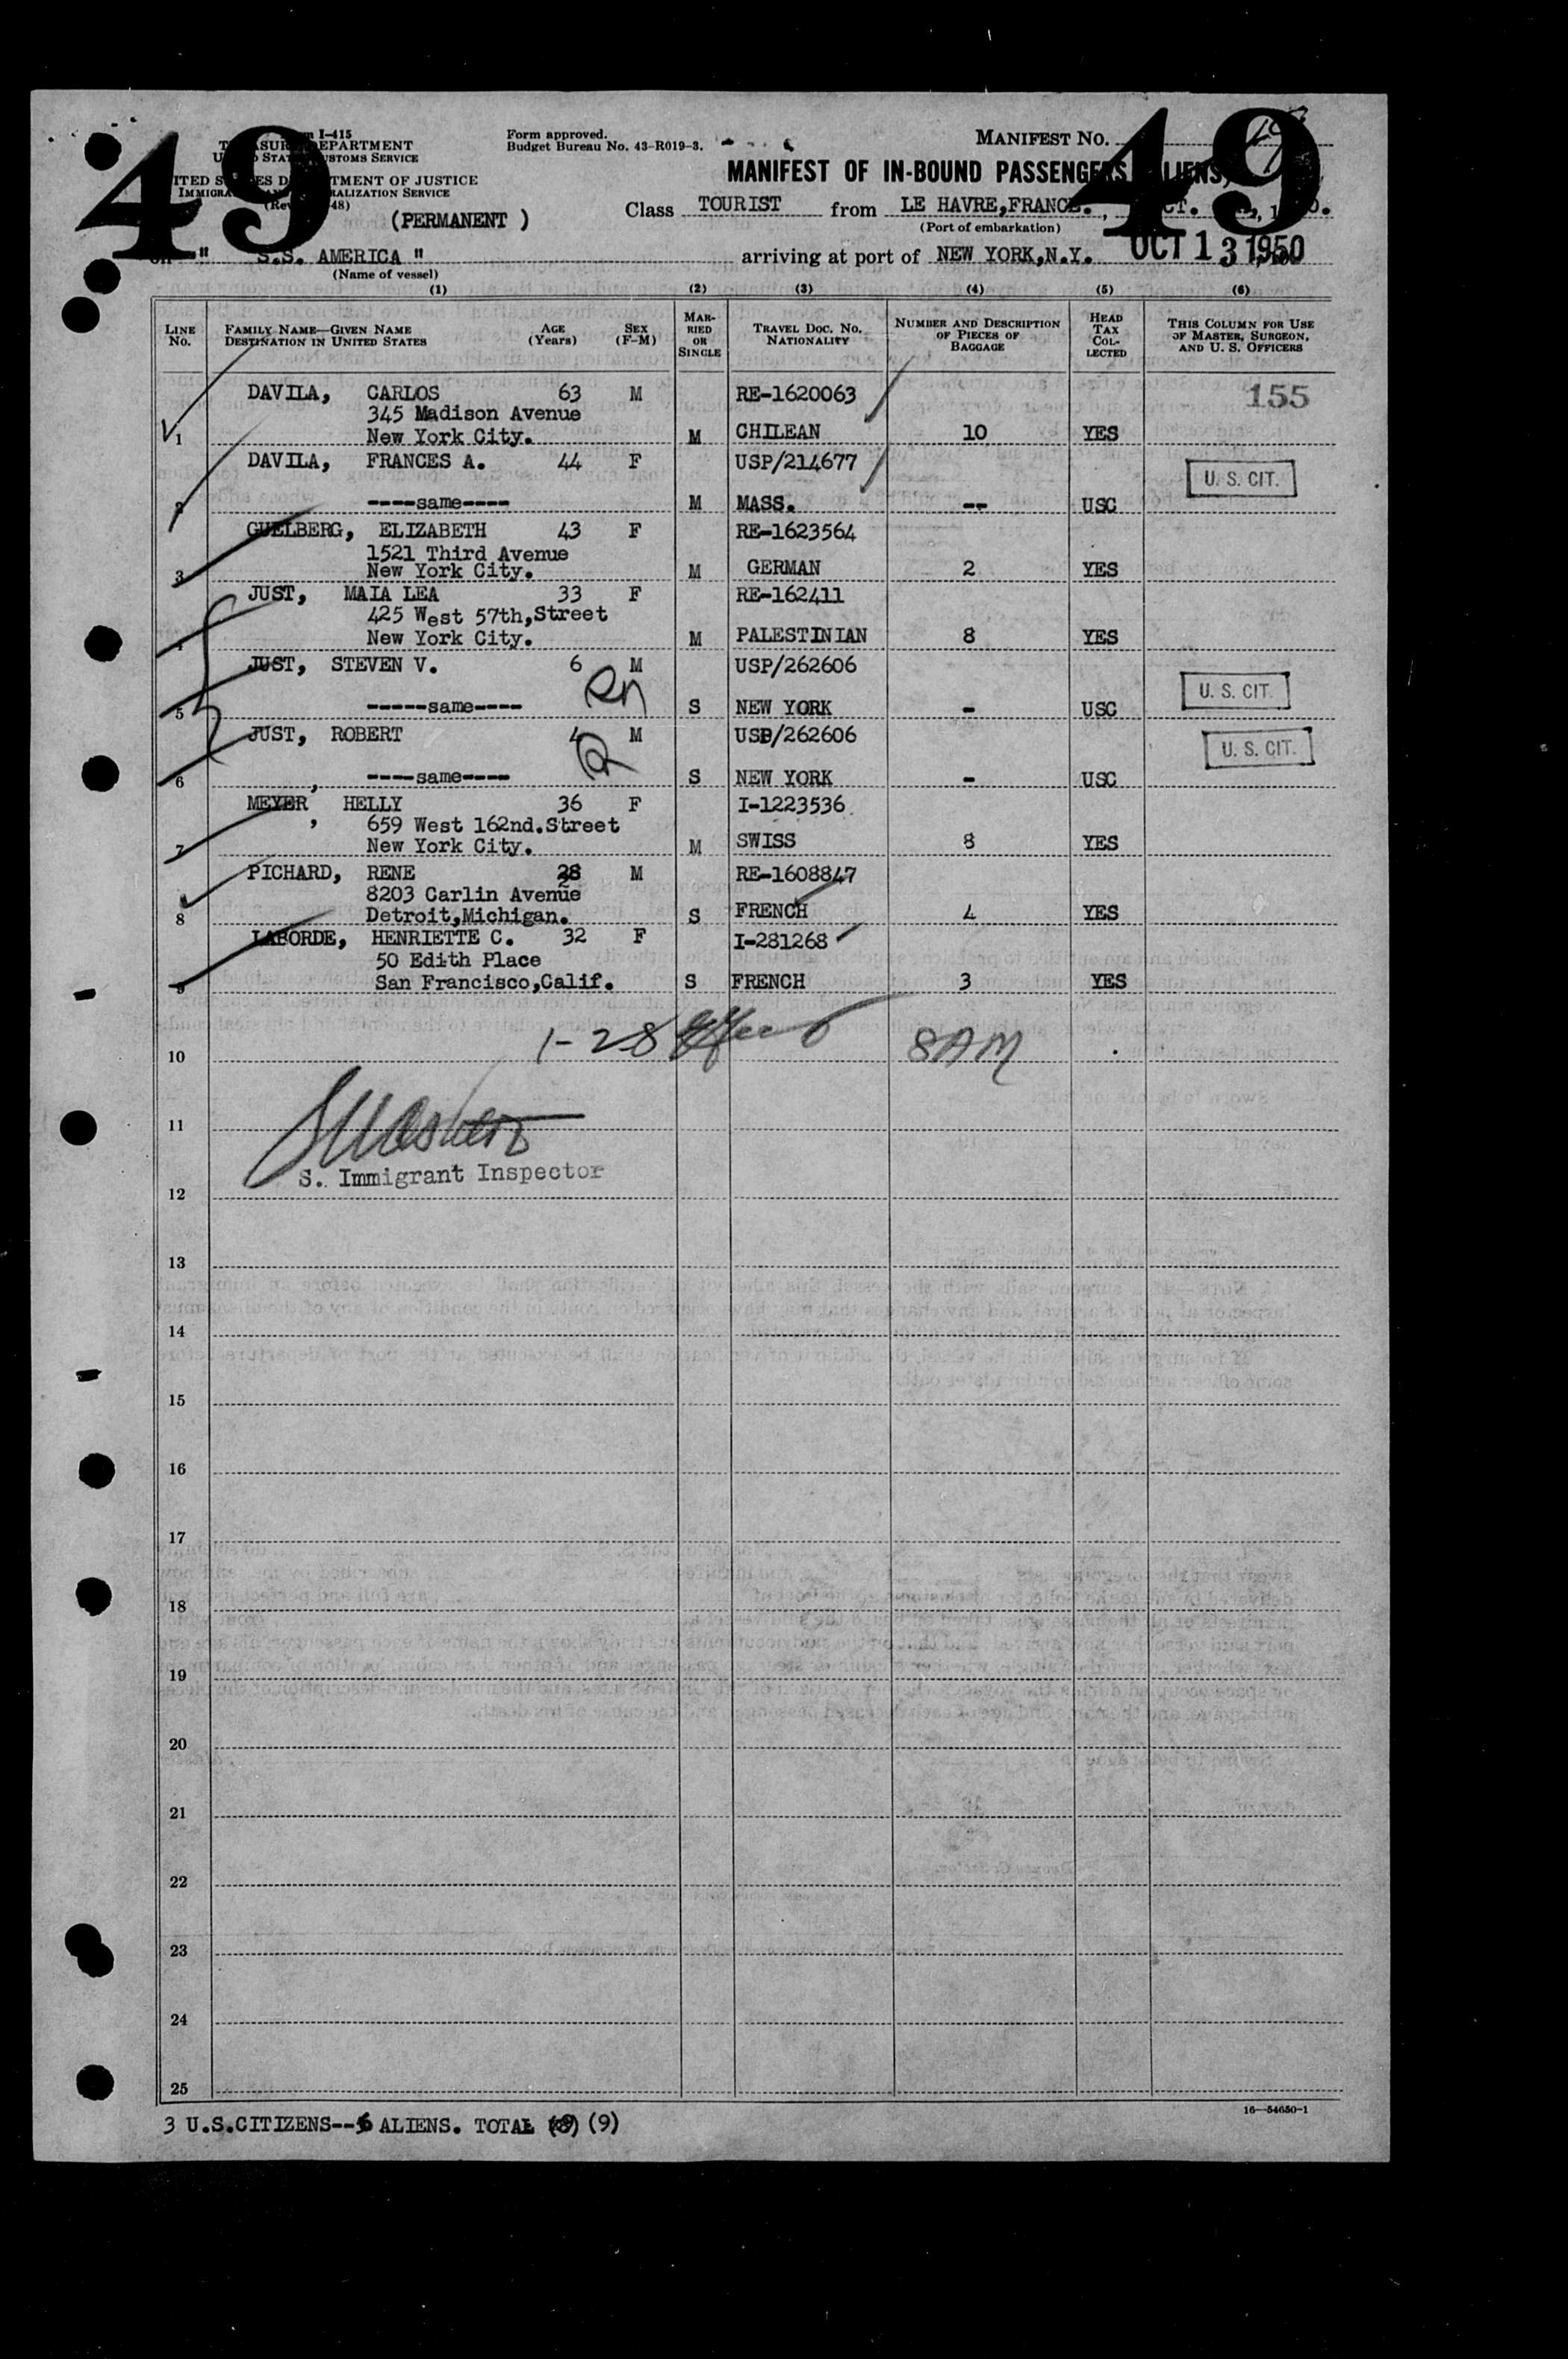 49
49
Form approved.
Budget Bureau No. 43-R019-3.
MANIFEST NO.
I-415
DEPARTMENT
CUSTOMS SERVICE
DEPARTMENT OF JUSTICE
SERVICE
MANIFEST OF IN-BOUND PASSENGERS
(PERMANENT )
Class TOURIST from LE HAVRE,FRANCE.,
(Port of embarkation)
" S.S. AMERICA "
(Name of vessel)
arriving at port of NEW YORK,N.Y. OCT 13 1950
(1) (2) (3) (4) (5) (6)
LINE No.
FAMILY NAME—GIVEN NAME
DESTINATION IN UNITED STATES
AGE (Years)
SEX (F-M)
MARRIED OR SINGLE
TRAVEL DOC. NO.
NATIONALITY
NUMBER AND DESCRIPTION OF PIECES OF BAGGAGE
HEAD TAX COLLECTED
THIS COLUMN FOR USE OF MASTER, SURGEON, AND U. S. OFFICERS
DAVILA, CARLOS 63 M RE-1620063 155
345 Madison Avenue
1 New York City. M CHILEAN 10 YES
DAVILA, FRANCES A. 44 F USP/214677 U. S. CIT.
2 ----same---- M MASS. -- USC
GUELBERG, ELIZABETH 43 F RE-1623564
1521 Third Avenue
3 New York City. M GERMAN 2 YES
JUST, MAIA LEA 33 F RE-162411
425 West 57th,Street
4 New York City. M PALESTINIAN 8 YES
JUST, STEVEN V. 6 M USP/262606
5 -----same---- S NEW YORK - USC U. S. CIT.
JUST, ROBERT 4 M USP/262606
6 ----same---- S NEW YORK - USC U. S. CIT.
MEYER, HELLY 36 F I-1223536
659 West 162nd.Street
7 New York City. M SWISS 8 YES
PICHARD, RENE 28 M RE-1608847
8203 Carlin Avenue
8 Detroit,Michigan. S FRENCH 4 YES
LABORDE, HENRIETTE C. 32 F I-281268
50 Edith Place
9 San Francisco,Calif. S FRENCH 3 YES
1-28 8AM
10
11
S. Immigrant Inspector
12
13
14
15
16
17
18
19
20
21
22
23
24
25
16—54650-1
3 U.S.CITIZENS--6 ALIENS. TOTAL (9)